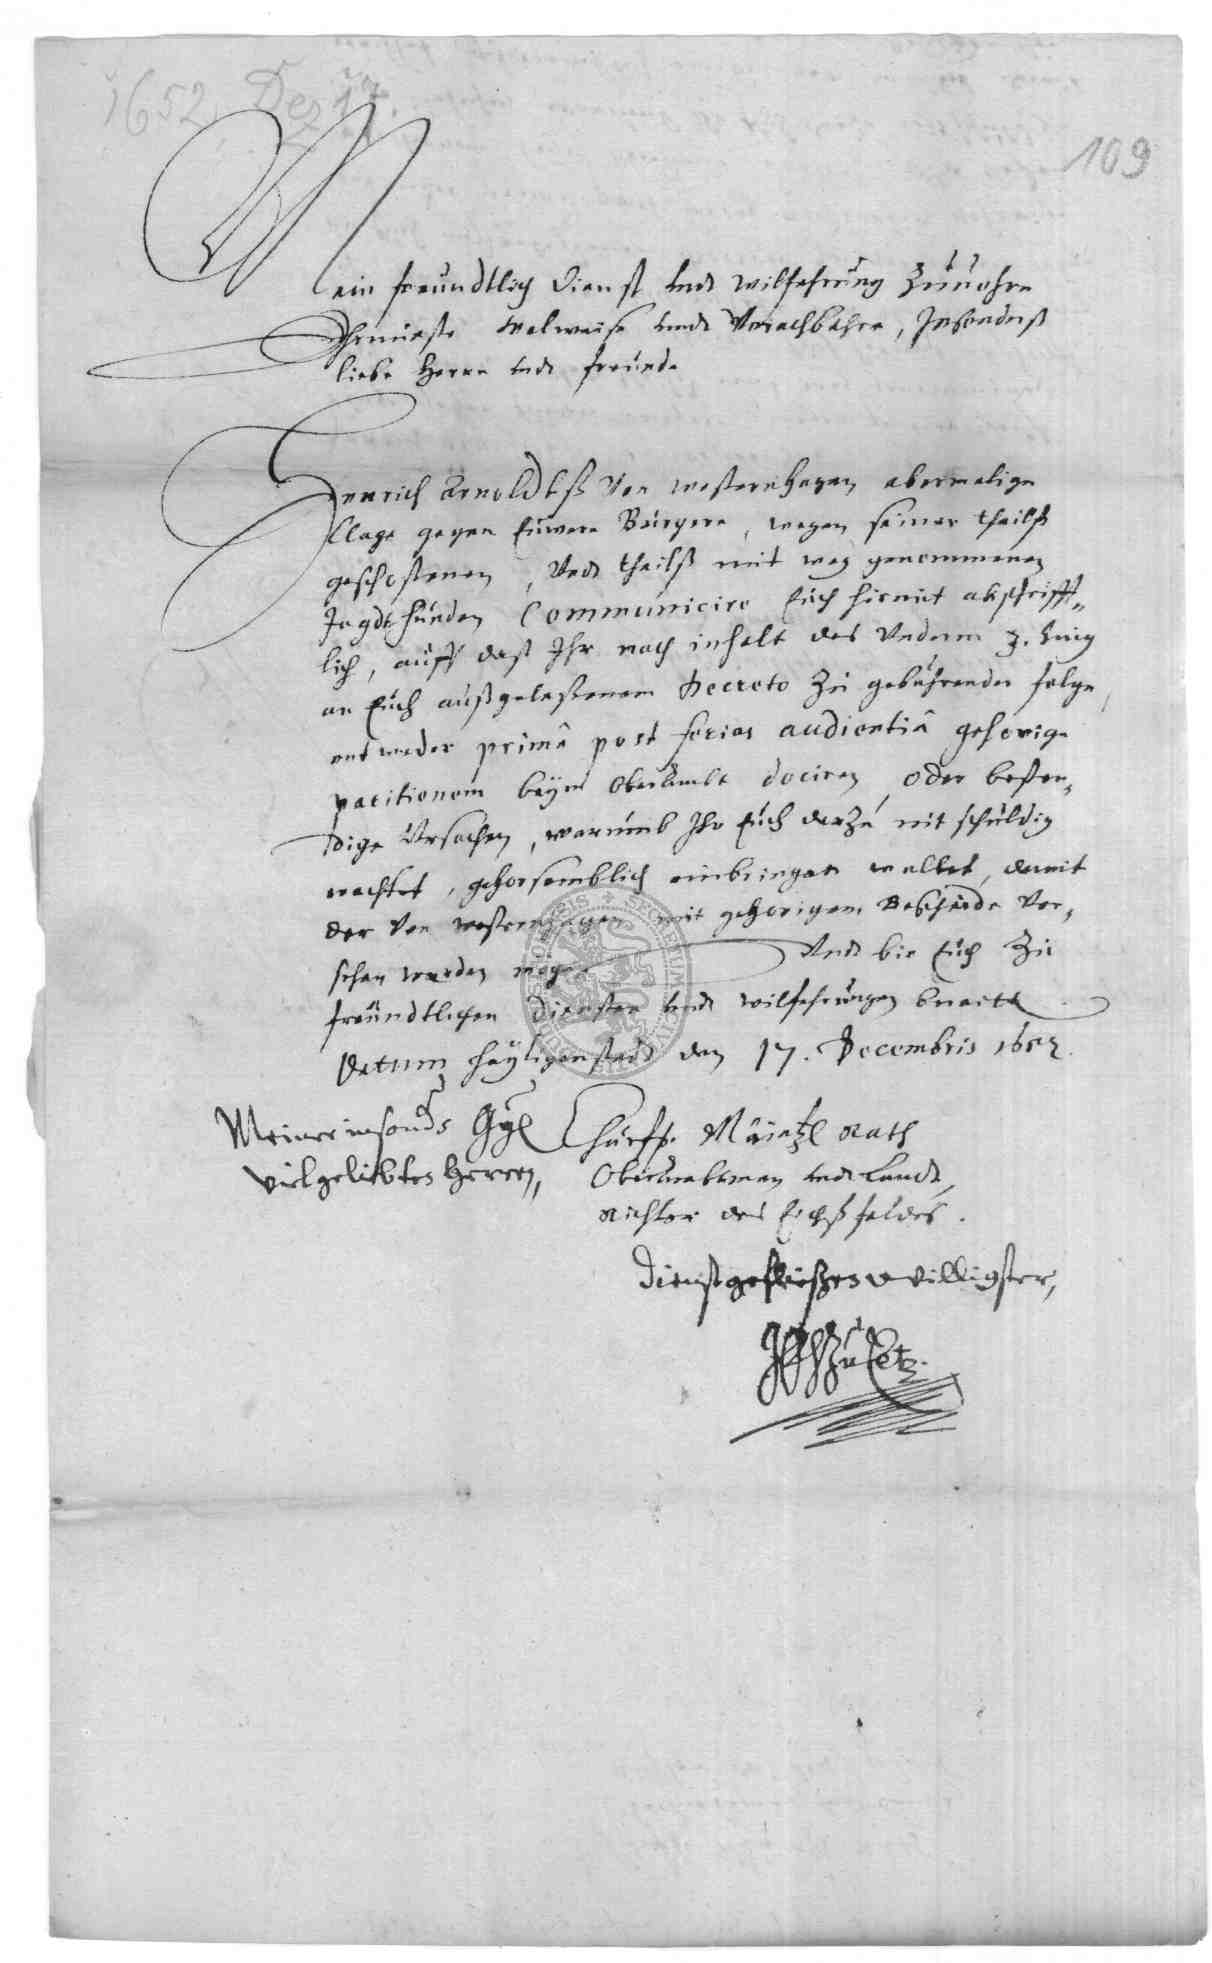 1652 Dez 17.
109
Mein freundtlich Dienst undt wilfahrung zuuohrn
Ehrnueste wolweise undt Vorachtbahre, Insonderß
liebe Herrn undt freunde
Henrich Arnoldtß Von Westernhagen abermalige
Clage gegen Euwere Bürgere, wegen seiner theilß
geschoßenen, Undt theilß mit weg genommenen
Jagdthunden Communicire Euch hiemit abschrifft„
lich, auff daß Ihr nach inhalt des Underm 3.
an Euch außgelaßenem Decreto Zu gebührender folge,
entweder primâ post ferias audientiâ gehorige
paritionem beym Oberambt dociren, oder bestan„
dige Ursachen, warumb Ihr Euch darzu nit schuldig
erachtet, gehorsamblich einbringen wollet, damit
der Von Westernhagen mit gehorigem Bescheide Ver„
sehen werden möge Undt bin Euch Zu
freundtlichen Diensten undt wilfahrungen bereit
Datum Heyligenstadt den 17. Decembris 1652.
Meiner insonds
vielgeliebten Herren,
Churfs. Mäintzl Rath
Oberambtman undt Landt„
Richter des Eichßfeldes.
Dienstgeflißen willigster,